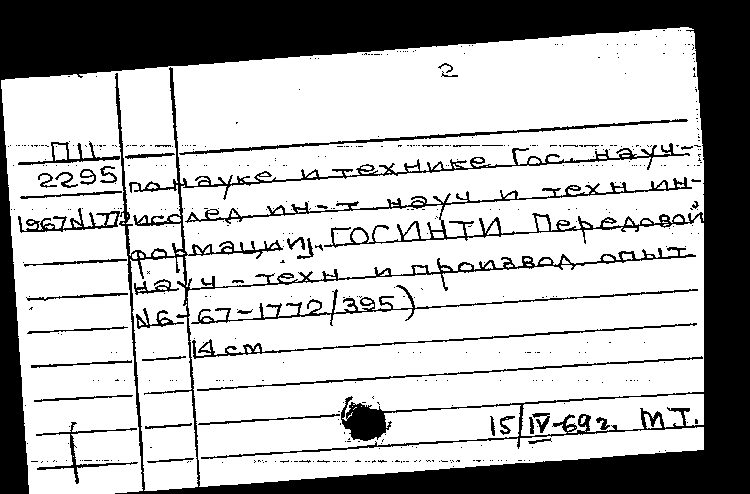 2
П11
2295 по науке и технике Гос. науч-
1967N1772 исслед ин-т науч и техн ин-
формации, ГОСИНТИ Передовой
науч-техн и производ опыт
N6-67-1772/395)
14 см
15/IV-69г. М.Т.